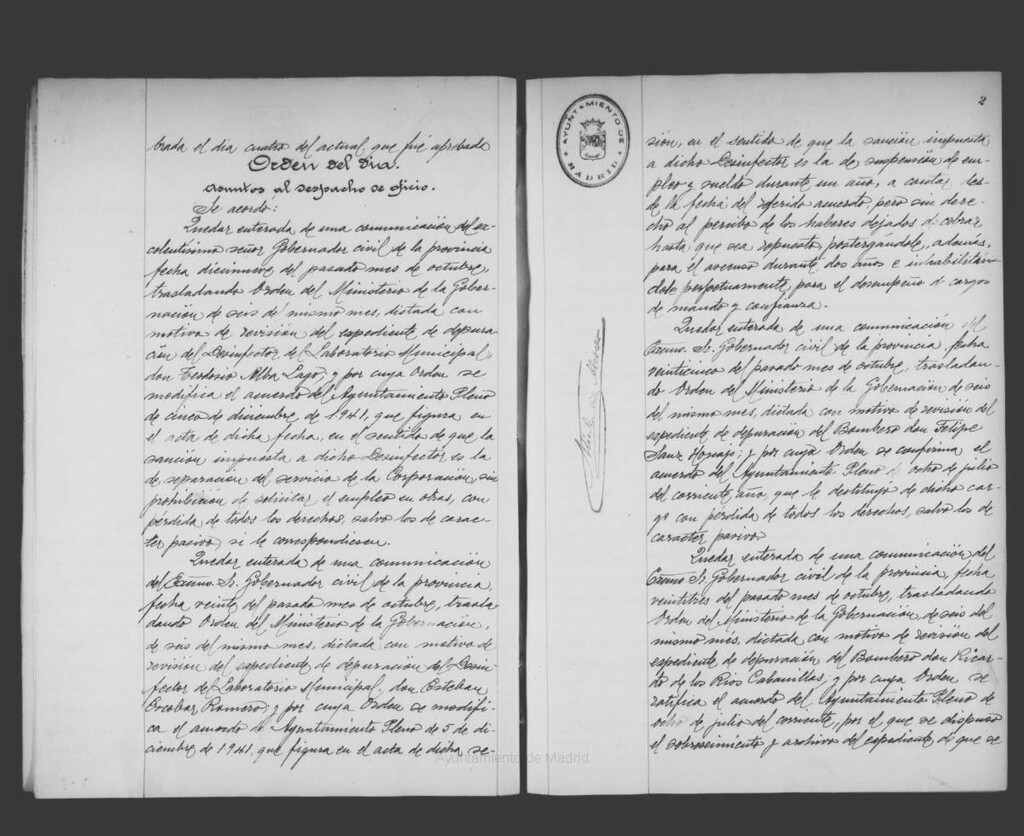 brada el dia cuatro del actual, que fué aprobada
Orden del Dia.
Asuntos al despacho de oficio.
Se acordó:
Quedar enterada de una comunicación del ex-
celentísimo señor Gobernador civil de la provincia
fecha diecinueve del pasado mes de octubre,
trasladando Orden del Ministerio de la Gober-
nación de seis de mismo mes, dictada con
motivo de revisión del expediente de depura
ción del Desinfector del Laboratorio Municipal,
don Teodosio Alba Lago; y por cuya Orden se
modifica el acuerdo del Ayuntamiento Pleno
de cinco de diciembre de 1941, que figura en
el acta de dicha fecha, en el sentido de que la
sanción impuesta a dicho Desinfector es la
de separación del servicio de la Corporación, sin
prohibición de solicitar el empleo en otras, con
pérdida de todos los derechos, salvo los de carac-
ter pasivo, si le correspondiesen.
Quedar enterada de una comunicación
del Excmo. Sr. Gobernador civil de la provincia,
fecha veinte del pasado mes de octubre, trasla
dando Orden del Ministerio de la Gobernación,
de seis del mismo mes, dictada con motivo de
revisión del expediente de depuración del Desin-
fector del Laboratorio Municipal, don Esteban
Escobar Romero; y por cuya Orden se modifi-
ca el acuerdo de Ayuntamiento Pleno de 5 de di-
ciembre de 1941, que figura en el acta de dicha se-
AYUNTAMIENTO DE
MADRID
2
sión, en el sentido de que la sanción impuesta
a dicho Desinfector es la de suspensión de em-
pleo y sueldo durante un año, a contar des-
de la fecha del referido acuerdo, pero sin dere-
cho al percibo de los haberes dejados de cobrar
hasta que sea repuesto, postergandole, además,
para el ascenso durante dos años e inhabilitán
dole perfectuamente, para el desempeño d cargos
de mando y confianza.
Quedar enterada de una comunicación del
Excmo. Sr. Gobernador civil de la provincia, fecha
veinticinco del pasado mes de octubre, trasladan-
do Orden del Ministerio de la Gobernación de seis
del mismo mes, dictada con motivo de revisión del
expediente de depuración del Bombero don Felipe
Sanz; y por cuya Orden se confirma el
acuerdo del Ayuntamiento Pleno d ocho de julio
del corriente año, que le destituyó de dicho car-
go con pérdida de todos los derechos, salvo los de
caracter pasivo
Quedar enterada de una comunicación del
Excmo Sr. Gobernador civil de la provincia, fecha
veintitres del pasado mes de octubre, trasladando
Orden del Ministerio de la Gobernación, de seis del
mismo mes, dictada con motivo de revisión del
expediente de depuración del Bombero don Ricar-
do de los Rios Cabanillas; y por cuya Orden se
ratifica el acuerdo del Ayuntamiento Pleno de
ocho de julio del corriente, por el que se dispuso
el sobreseimiento y archivo del expediente de que se
Ayuntamiento de Madrid